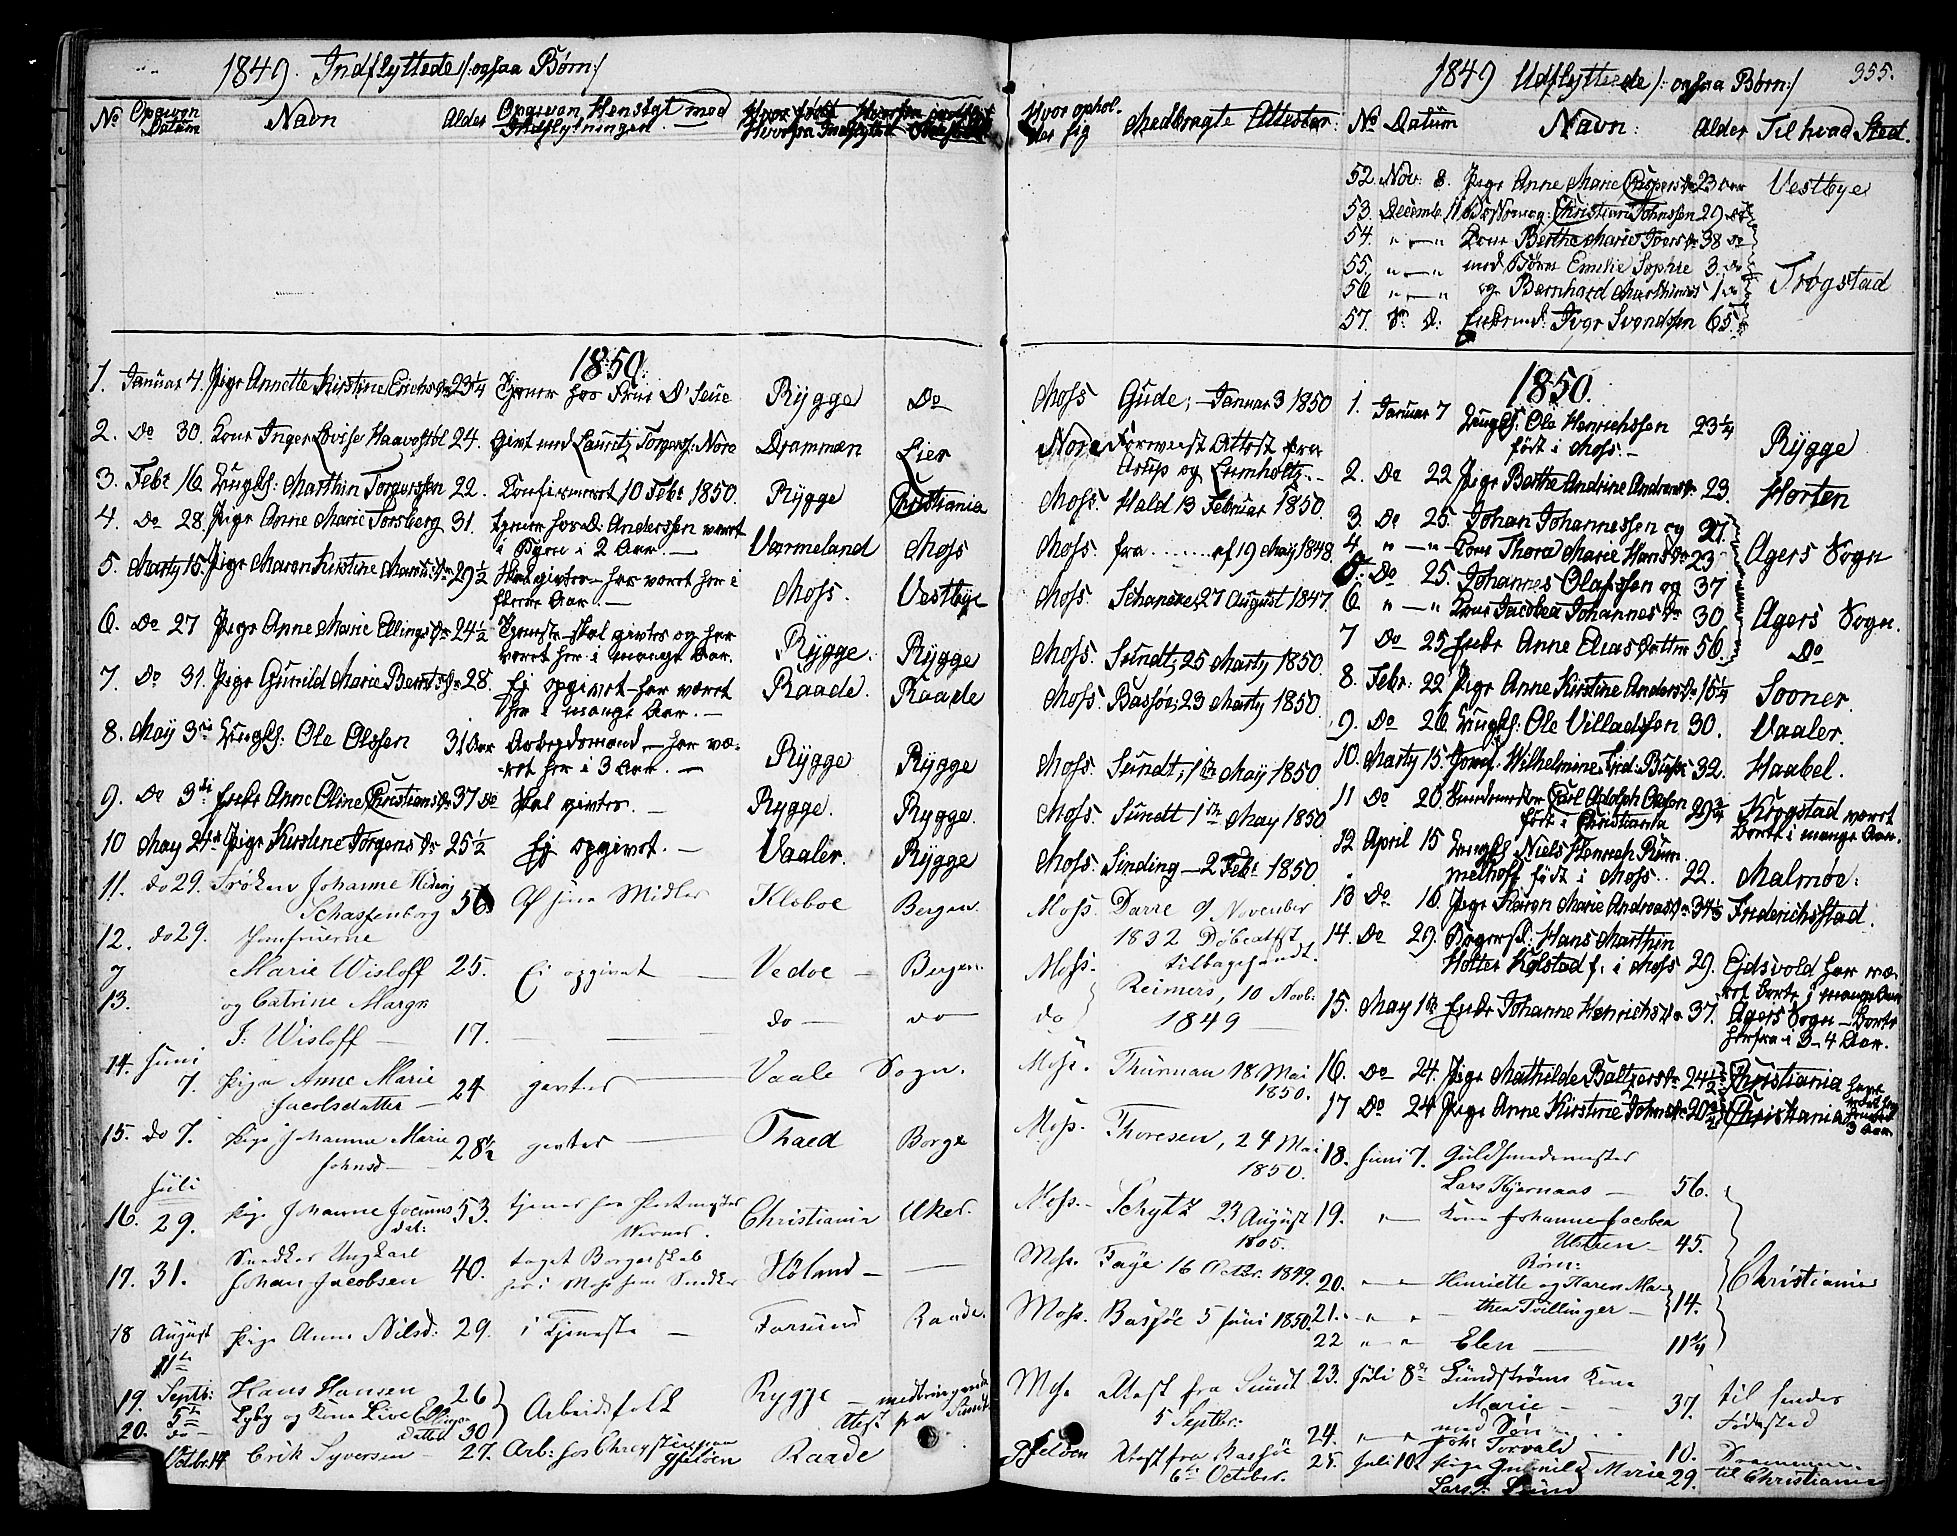 1849. Indflyttede /: ogsaa Børn :/
No Opgiven Datum Navn Alder Opgiven Hensigt med Indflytningen. Hvor født Hvorfra Indflyttet
Hvor ophol-der sig Medbragte Attester:
1850.
1. Januar 4. Pige Annette Kirstine Erichsdr 23 1/4 Tjener hos Rygge Do Moss. Gude, Januar 3 1850
2. Do 30. Kone Inger Lovise Haavestøl 24. givt med Lauritz Torgers: Nore Drammen Lier Nore Forrevist Attest fra
Arup og Lumholtz.-
3. Febr 16 Ungk: Marthin Torgerssen 22. Confirmeret 10 Febr 1850. Rygge Christiania Moss. Hald 13 Februar 1850.
4. Do 28. Pige Anne Marie Forsberg 31. tjener hos D: Anderssen været
i Byen i 2 Aar. - Varmeland Moss Moss. fra ........ af 19 May 1848.
5. Marty 15. Pige Maren Kirstine 29 1/2 Skal givtes - har været her i
flere Aar. - Moss. Vestbye Moss. Schancke, 27 August 1847.
6. Do 27 Pige Anne Marie Ellingsdr 24 1/2 Tjeneste - skal givtes og har
været her i mange Aar. Rygge. Rygge Moss. Sundt, 25 Marty 1850.
7. Do 31. Pige Gunild Marie Berntsdr 28. Ej opgivet - har været
her i mange Aar. - Raade. Raade Moss. Bassøe, 23 Marty 1850.
8. May 3die Ungk: Ole Olssen 31 Aar Arbeidsmand - har væ-
ret her i 3 Aar. - Rygge Rygge Moss. Sundt, 1ste May 1850.
9. Do 3di Enke Anne Oline Christiansdr 37 Do Skal givtes. - Rygge. Rygge. Moss. Sundt 1ste May 1850.
10 May 24de Pige Kirstine Jørgensdr 25 1/2 Ej opgivet. - Vaaler. Rygge Moss. Sinding - 2 Febr 1850.
11. do 29. Frøken Johanne Hedvig
Schassenborg 56. Af sine Midler Kloboe Bergen. Moss. Darre 9 November
1832 Døbeattest
tilbagesendt.
12. do 29. Jomfruerne
Marie Wisloff 25. Ei opgivet - Vedoe - Bergen. Moss. Reimers, 10 Novb:
1849
13. og Catrine Margr.
J: Wisloff - 17. - do - do do
14. Juni
7. Pige Anne Marie
Jacobsdatter - 24 giftes - Vaale Sogn. Moss. Thurman 18 Mai
1850.
15. do 7. Pige Johanne Marie
Johnsd - 28 1/2 giftes - Thaed Borge Moss. Thoresen, 24 Mai
1850.
Juli
16. 29. Pige Johanne 53. tjener hos Postmester
Christiania Aker. Moss. Schytz 23 August
1805.
17. 31. Snedker Ungkarl
Johan Jacobsen 40. taget Borgerskab
her i Moss som Snedker Høland - Moss. Faye 16 Octbr. 1849.
18 August
11te Pige Anne Nilsd: 29. i Tjeneste - Raade. Moss. Bassøe 5 Juni 1850.
19. Septbr: Hans Hansen 26
5te Lyby og Kone Live Ellings-
20. do datter 30 Arbeidsfolk Rygge - medbringende
Attest fra Sundt Moss Attest fra Sundt
5 Septbr:
Octbr. 14 Erik Syversen - 27. Arb: hos
Gjeløen Raade Gjeløen Attest fra Bassøe
6te October.
1849 Udflyttede /: ogsaa Børn :/ 355.
No Datum Navn: Alder Til hvad Sted.
52. Nov: 8. Pige Anne Marie Caspersdr 23 Aar Vestbye
53. Decemb. 11 Christian Johnssen 29 do
54. " - " Kone Berthe Marie Iversdr 38 Do
55. " - " med Børn Emilie Sophie 3. Do Trøgstad
56 " - " og Bernhard Marthinus 1 Do
57. D: Enkemd: Iver Svendssen 65
1850.
1. Januar 7 Ungk: Ole Henrichssen 23 1/4
født i Moss. - Rygge
2. Do 22 Pige Berthe Andrine Andersdr 23. Horten
3. Do 25. Johan Johannessen og 27.
4. " - " Kone Thora Marie Hansdr 23 Agers Sogn
5. Do 25. Johannes Olafssen og 37
6 " - " Kone Jacobea Johannesdr 30 Agers Sogn.
7 Do 25 Enke Anne Eliasdatter 56. Do
8. Febr: 22 Pige Anne Kirstine Andersdr 15 1/4 Sooner.
9. Do 26 Ungk: Ole Villadssen 30. Vaaler.
10. Marty 15. Jomf: Wilhelmine 32. Haabel.
11 Do 20. Carl Adolph Olssen
født i Christiania 29 3/4 Krogstad været
borte i mange Aar.
12 April 15 Ungk Niels Henrich Rum-
melhoff født i Moss. 22. Malmøe:
13 Do 18. Pige Karen Marie Andreasdr 34 1/2 Friderichstad.
14. Do 29. Hans Marthin
Holter Kolstad f. i Moss 29. Ejdsvold har væ-
ret borte i mange Aar
15. May 1ste Enke Johanne Henrichsdr 37. Agers Sogn - borte
herfra i 3-4 Aar.
16. Do 24. Pige Mathilde Baltzersdr 24 1/2 Christiania
17 Do 24 Pige Anne Kirstine Johnsdr 20 Christiania
3 Aar
18. Juni 7. Guldsmedmester
Lars Kjernaas - 56.
19. " - Kone Johanne Jacobea
45.
Børn:
20. " - " Henriette og Karen Ma-
21. " " thea Tvillinger - 14. Christiania
22 " " Elen - 11 3/4
23. Juli 8de Lundstrøms Kone
Marie - - 37. til hendes
Fødested
24. " - " med Søn
Joh: Torvald 10. Drammen
25. Juli 10 Pige Gunild Marie 29. til Christiania
Lars D. Lund